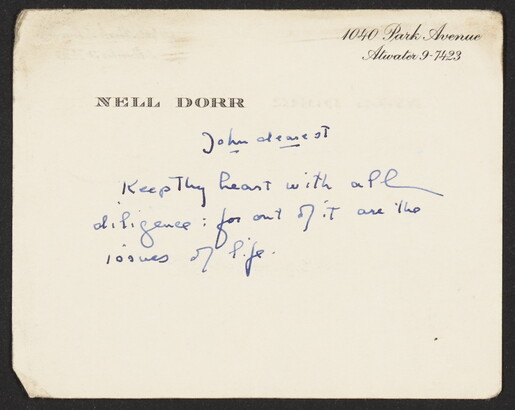 1040 Park Avenue
Atwater 9-7423
NELL DORR
John dearest
Keep Thy heart with all
diligence: for out of it are the
issues of life.